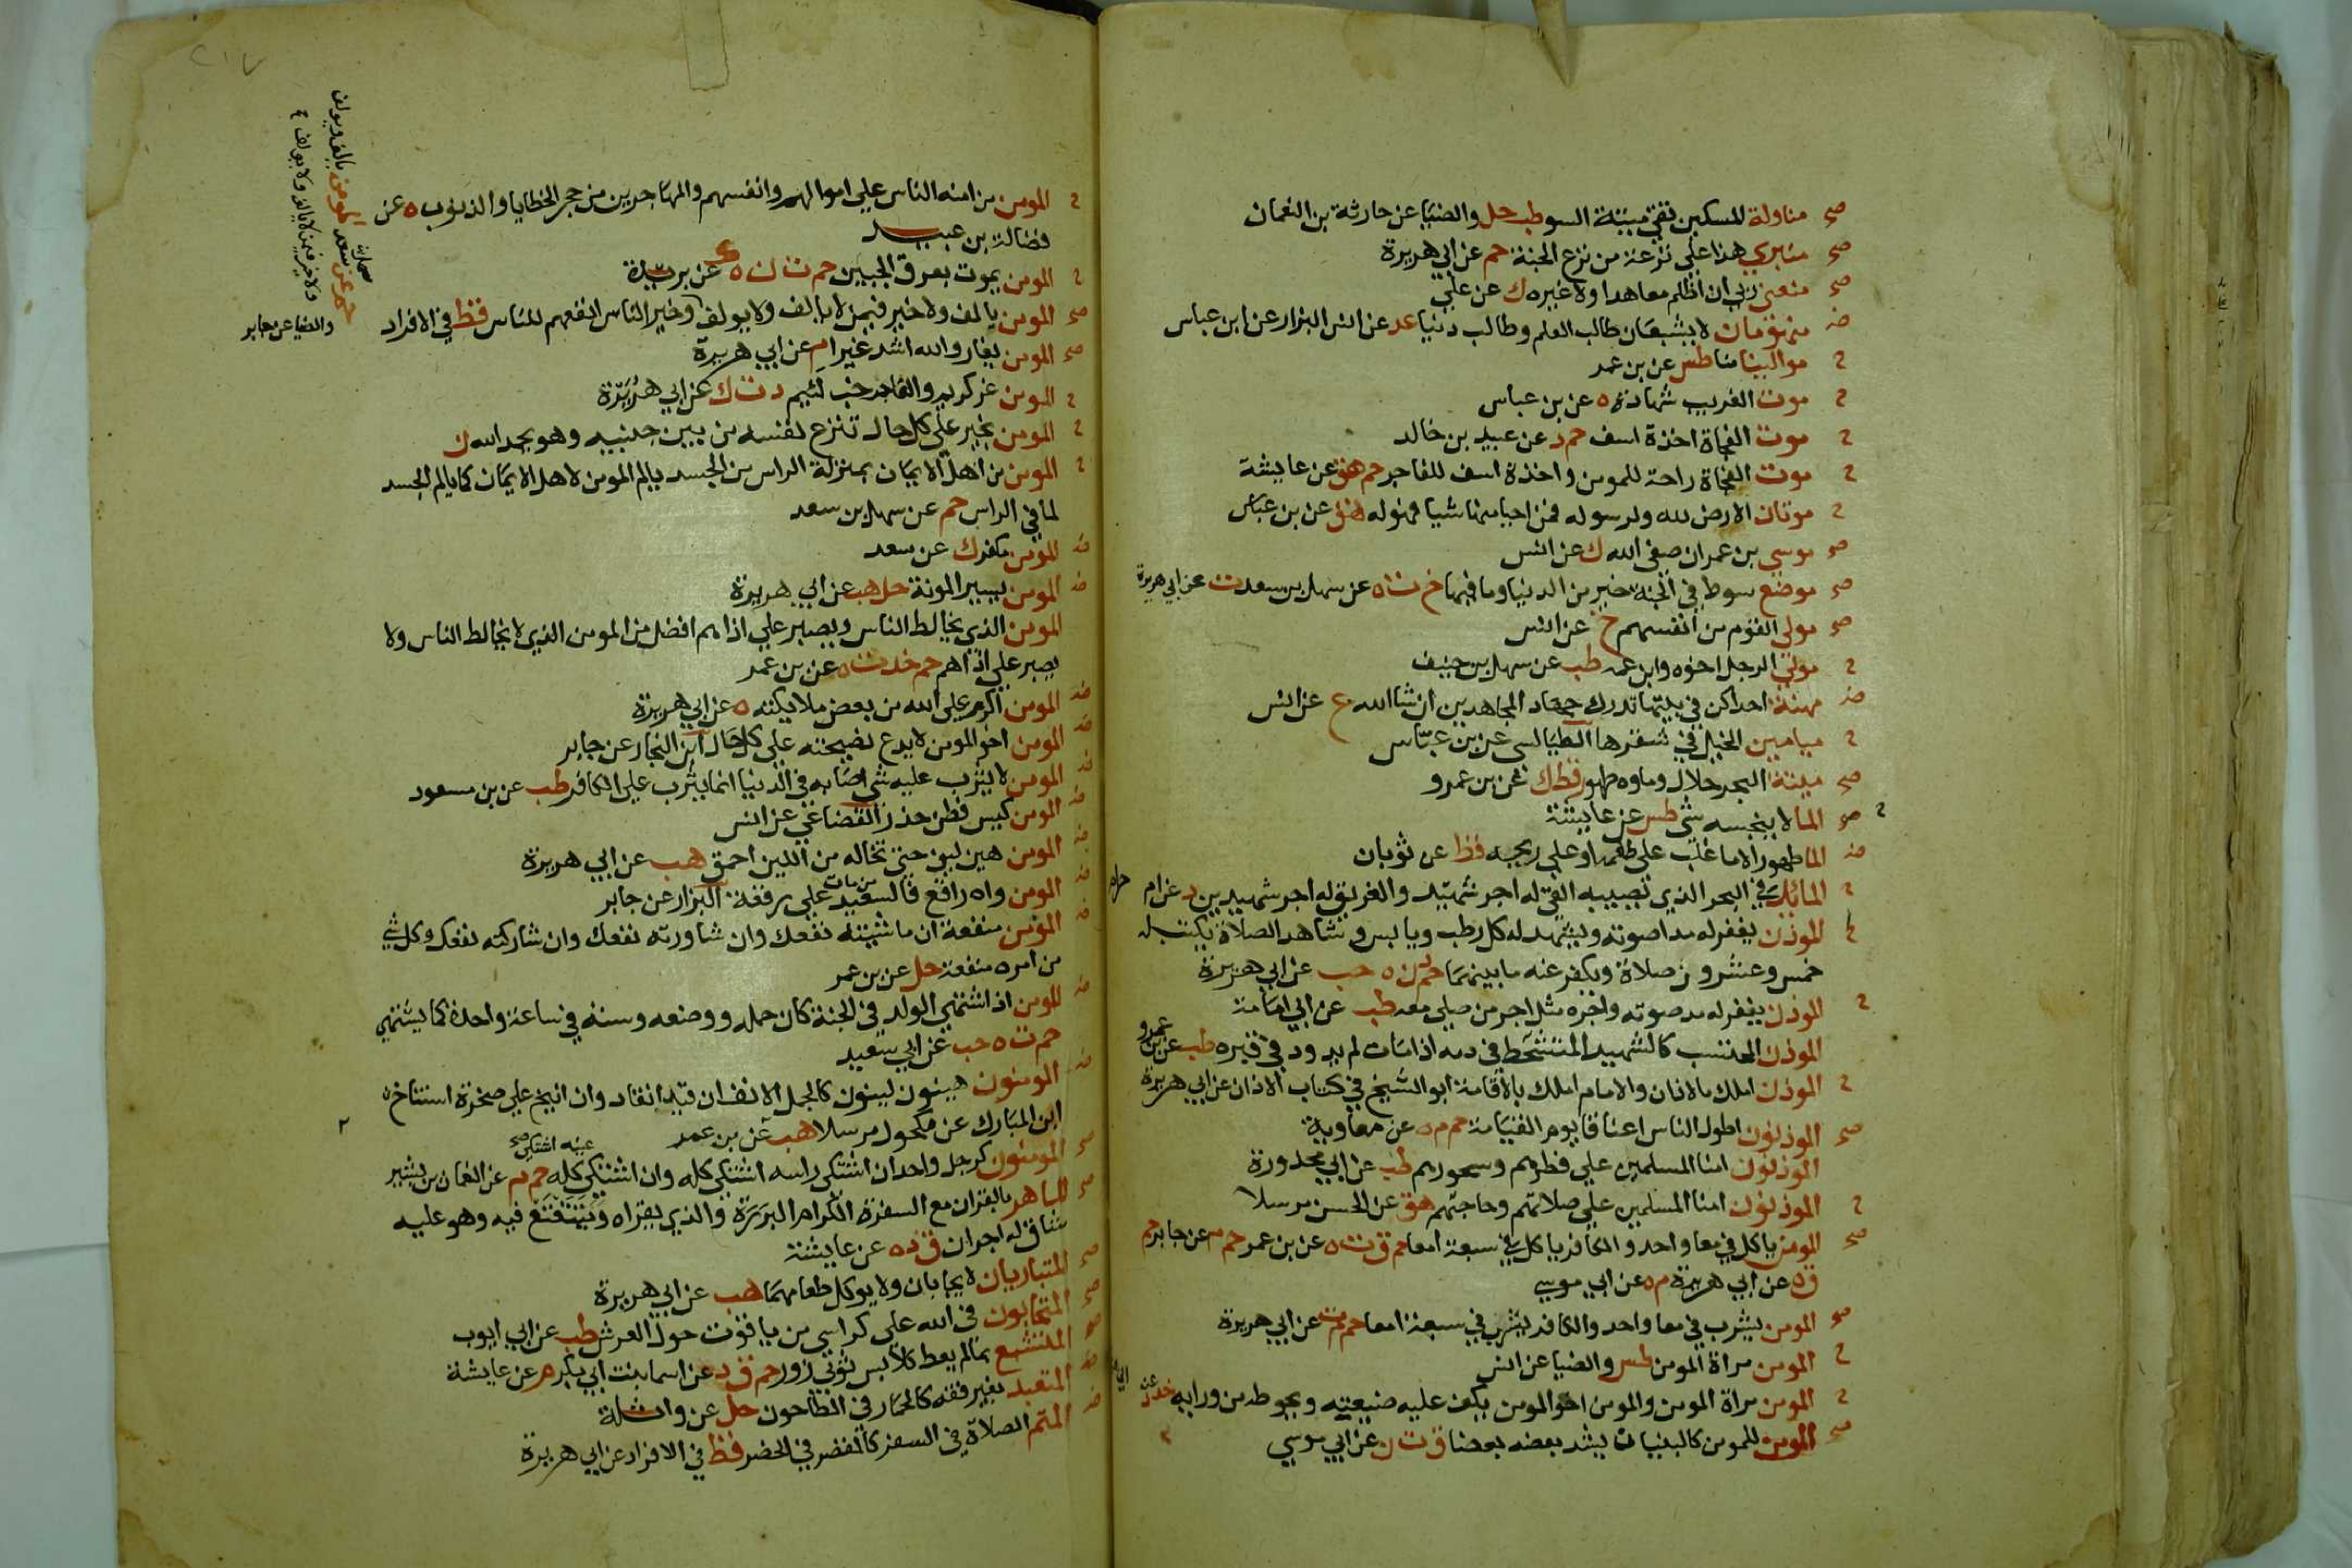 صح مناولة المسكين تقي ميتة السو طب حل والضيا عن حارثة بن النعمان
صح منبري هذا على نزعة من نزع الجنة حم عن ابي هريرة
صح منعني ربي ان اظلم معاهدا ولا غيره ك عن علي
ض منهومان لا يشبعان طالب العلم وطالب دنيا عد عن انس البزار عن ابن عباس
ح موالينا منا طس عن بن عمر
ح موت الغريب شهادة ه عن بن عباس
ح موت الفجاة اخذة اسف حم د عن عبيد بن خالد
ح موت الفجاة راحة للمومن واخذة اسف للفاجر حم هق عن عايشة
ح موتان الارض لله ولرسوله فمن احيا منها شيا فهو له هق عن بن عباس
صح موسي بن عمران صفي الله ك عن انس
صح موضع سوط في الجنة خير من الدنيا وما فيها خ ت ه عن سهل بن سعد ت عن ابي هريرة
صح مولي القوم من انفسهم خ عن انس
ح مولي الرجل اخوه وابن عمه طب عن سهل بن حنيف
ض مهنة احداكن في بيتها تدرك جهاد المجاهدين ان شا الله ع عن انس
ح ميامين الخيل في شقرها الطيالسي عن بن عباس
صح ميتة البحر حلال وماوه طهور قط ك عن بن عمرو
ح صح الما لا ينجسه شي طس عن عايشة
ض الما طهور الا ما غلب على طعمه او على ريحه قط عن ثوبان
ح المايد في البحر الذي تصيبه القي له اجر شهيد والغريق له اجر شهيدين د عن ام حرام
الموذن يغفر له مدا صوته ويشهد له كل رطب ويابس وشاهد الصلاة يكتب له
خمس وعشرون صلاة ويكفر عنه ما بينهما حم د ن ه حب عن ابي هريرة
ح الموذن يغفر له مد صوته واجره مثل اجر من صلي معه طب عن ابي امامة
الموذن المحتسب كالشهيد المتشحط في دمه اذا مات لم يدود في قبره طب عن بن عمرو
ح الموذن املك بالاذان والامام املك بالاقامة ابو الشيخ في كتاب الاذان عن ابي هريرة
صح الموذنون اطول الناس اعناقا يوم القيامة حم م ه عن معاوية
الموذنون امنا المسلمين على فطرهم وسحورهم طب عن ابي محذورة
ح الموذنون امنا المسلمين على صلاتهم وحاجتهم هق عن الحسن مرسلا
صح المومن ياكل في معا واحد والكافر ياكل في سبعة امعا حم ق ت ه عن بن عمر حم م عن جابر حم
ق ه عن ابي هريرة م ه عن ابي موسي
صح المومن يشرب في معا واحد والكافر يشرب في سبعة امعا حم م ت عن ابي هريرة
ح المومن مراة المومن طس والضيا عن انس
ح المومن مراة المومن والمومن اخو المومن يكف عليه ضيعته ويحوطه من ورايه خد د عن ابي
صح المومن للمومن كالبنيان يشد بعضه بعضا ق ت ن عن ابي موسي
٢١٧
ح المومن من امنه الناس علي اموالهم وانفسهم والمهاجر من هجر الخطايا والذنوب ه عن
فضالة بن عبيد
ح المومن يموت بعرق الجبين حم ت ن ه ك عن بريدة
صح المومن يالف ولا خير فيمن لا يالف ولا يولف وخير الناس انفعهم للناس قط في الافراد
والضيا عن جابر
المومن يالف ويولف
ولا خير فيمن لا يالف ولا يولف
حم عن سهل بن سعد
صح المومن يغار والله اشد غيرا م عن ابي هريرة
ح المومن غر كريم والفاجر خب لئيم د ت ك عن ابي هريرة
ح المومن بخير علي كل حال تنزع نفسه من بين جنبيه وهو يحمد الله ن
ح المومن من اهل الايمان بمنزلة الراس من الجسد يالم المومن لاهل الايمان كما يالم الجسد
لما في الراس حم عن سهل بن سعد
ض المومن مكفر ك عن سعد
ض المومن يسير المونة حل هب عن ابي هريرة
المومن الذي يخالط الناس ويصبر علي اذاهم افضل من المومن الذي لا يخالط الناس ولا
يصبر علي اذاهم حم خد ت ه عن بن عمر
ض المومن اكرم علي الله من بعض ملايكته ه عن ابي هريرة
ض المومن اخو المومن لا يدع نصيحته علي كل حال ابن النجار عن جابر
ض المومن لا يثرب عليه شي اصابه في الدنيا انما يثرب علي الكافر طب عن بن مسعود
ض المومن كيس فطن حذر القضاعي عن انس
ض المومن هين لين حتى تخاله من اللين احمق هب عن ابي هريرة
ض المومن واه راقع فالسعيد من مات علي رقعه البزار عن جابر
ض المومن منفعة ان ماشيته نفعك وان شاورته نفعك وان شاركته نفعك وكل شي
من امره منفعة حل عن بن عمر
ض المومن اذا اشتهي الولد في الجنة كان حمله ووضعه وسنه في ساعة واحدة كما يشتهي
حم ت ه حب عن ابي سعيد
ض المومنون هينون لينون كالجمل الانف ان قيد انقاد وان انيخ علي صخرة استناخ
ابن المبارك عن مكحول مرسلا هب عن بن عمر
صح المومنون كرجل واحد ان اشتكي راسه اشتكي كله وان اشتكي عينه اشتكي كله حم م عن النعمان بن بشير
صح الماهر بالقران مع السفرة الكرام البررة والذي يقراه ويتتعتع فيه وهو عليه
شاق له اجران ق د ه عن عايشة
صح المتباريان لا يجابان ولا يوكل طعامهما هب عن ابي هريرة
صح المتحابون في الله علي كراسي من ياقوت حول العرش طب عن ابي ايوب
صح المتشبع بما لم يعط كلابس ثوبي زور حم ق د عن اسما بنت ابي بكر م عن عايشة
ض المتعبد بغير فقه كالحمار في الطاحون حل عن واثلة
ض المتم الصلاة في السفر كالمقصر في الحضر قط في الافراد عن ابي هريرة